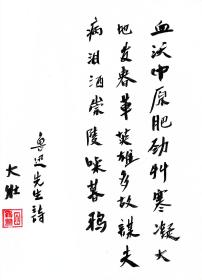 血沃中原肥劲艸寒凝大
地发春華英雄多故謀夫
病泪洒崇陵噪暮鴉
魯迅先生詩
大壯